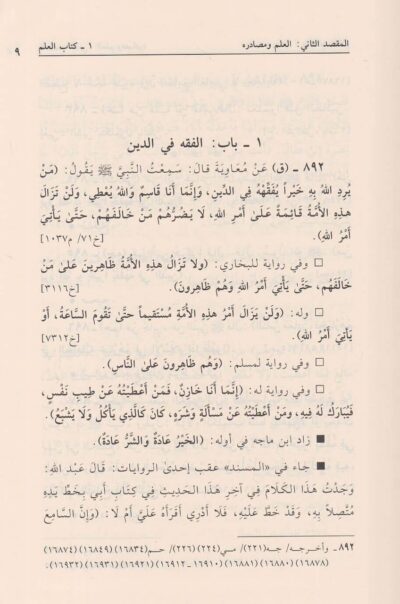 المقصد الثاني: العلم ومصادره ١ ـ كتاب العلم ٩
١ ـ باب: الفقه في الدين
٨٩٢ ـ (ق) عَنْ مُعَاوِيَةَ قالَ: سَمِعْتُ النَّبِيَّ ﷺ يَقُولُ: (مَنْ
يُرِدِ اللهُ بِهِ خَيْراً يُفَقِّهْهُ فِي الدِّينِ، وَإِنَّمَا أَنَا قَاسِمٌ وَاللهُ يُعْطِي، وَلَنْ تَزَالَ
هذِهِ الأُمَّةُ قائِمَةً عَلَىٰ أَمْرِ اللهِ، لَا يَضُرُّهُمْ مَنْ خَالَفَهُمْ، حَتَّىٰ يَأْتِيَ
أَمْرُ اللهِ). [خ٧١/ م١٠٣٧]
□ وفي رواية للبخاري: (ولا تَزَالُ هذِهِ الأُمَّةُ ظَاهِرِينَ عَلىٰ مَنْ
خَالَفَهُم، حَتَّىٰ يَأْتِيَ أَمْرُ اللهِ وَهُمْ ظَاهِرُونَ). [خ٣١١٦]
□ وله: (وَلَنْ يَزَالَ أَمْرُ هذِهِ الأُمَّةِ مُسْتَقِيماً حتَّىٰ تَقُومَ السَّاعَةُ، أَوْ
يَأْتِيَ أَمْرُ اللهِ). [خ٧٣١٢]
□ وفي رواية لمسلم: (وَهُم ظَاهِرُونَ عَلىٰ النَّاسِ).
□ وفي رواية له: (إِنَّمَا أَنَا خَازِنٌ، فَمَنْ أَعْطَيْتُهُ عَنْ طِيبِ نَفْسٍ،
فَيُبَارَكُ لَهُ فِيهِ، ومَنْ أَعْطَيْتُهُ عَنْ مَسْأَلَةٍ وَشَرَهٍ، كَانَ كَالَّذِي يَأْكُلُ وَلَا يَشْبَعُ).
■ زاد ابن ماجه في أوله: (الخَيْرُ عَادَةٌ وَالشَّرُّ عَادَةٌ).
■ جاء في «المسند» عقب إحدىٰ الروايات: قَالَ عَبدُ اللهِ:
وَجَدْتُ هَذَا الكَلَامَ فِي آخِرِ هَذَا الْحَدِيثِ فِي كِتَابِ أَبِي بِخَطِّ يَدِهِ
مُتَّصِلاً بِهِ، وَقَدْ خَطَّ عَلَيْهِ، فَلَا أَدْرِي أَقَرَأَهُ عَلَيَّ أَمْ لَا: (وَإِنَّ السَّامِعَ
٨٩٢ ـ وأخرجه/ جه(٢٢١)/ مي(٢٢٤) (٢٢٦)/ حم(١٦٨٣٤) (١٦٨٤٩) (١٦٨٧٤)
(١٦٨٧٨) (١٦٨٨٠) (١٦٨٨١) (١٦٩١٠ ـ ١٦٩١٢) (١٦٩٢١) (١٦٩٣١) (١٦٩٣٢).